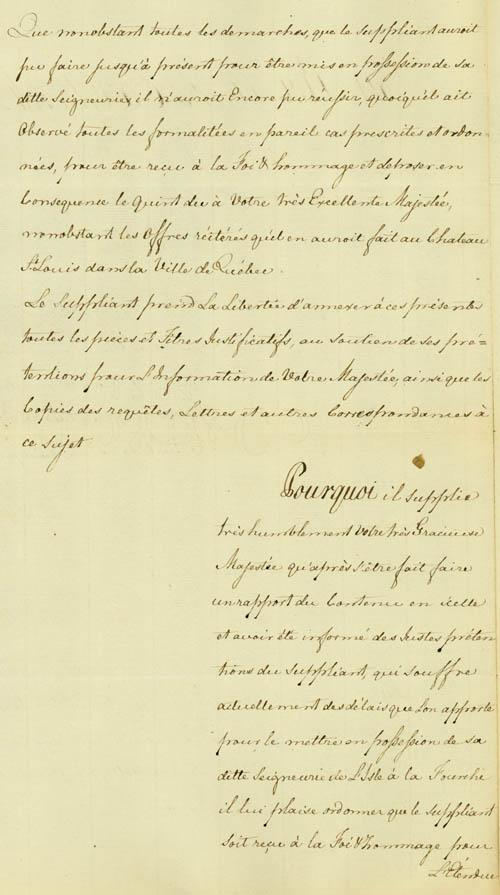 Que nonobstant toutes les demarches, que le Suppliant auroit
pu faire jusqu'à présent pour être mis en possession de sa
ditte Seigneurie, il n'auroit Encore pu réussir, quoiqu'il ait
Observé toutes les formalitées en pareil cas prescrites et ordon-
nées, pour être reçu à la Foi & hommage et deposer en
Consequense le Quint du à Votre très Excellente Majestée,
nonobstant les Offres réïtérés qu'il en auroit fait au Chateau
St. Louis dans la Ville de Québec.
Le Suppliant prend La Libertée d'annexer à ces présentes
toutes les pièces et Titres Justificatifs, au soutien de ses pré=
tentions pour L'Information de Votre Majestée, ainsi que les
Copies des requêtes, Lettres et autres Correspondances à
ce sujet
Pourquoi il supplie
très humblement Votre très Gracieuse
Majestée qu'après s'être fait faire
un rapport du Contenu en icelle
et avoir été informé des Justes préten
tions du Suppliant, qui souffre
actuellement des délais que L'on apporte
pour le mettre en possession de sa
ditte Seigneurie de L'Isle à la Fourche
il lui plaise ordonner que le Suppliant
soit reçu à la Foi & hommage pour
L'Étendue